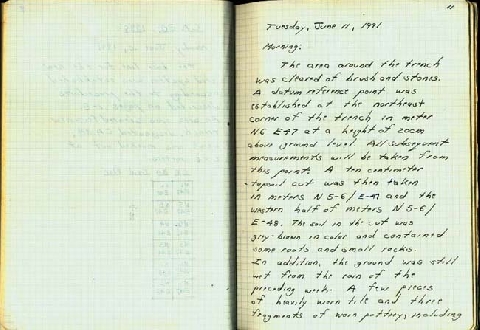 11
Tuesday, June 11, 1991
Morning:
The area around the trench
was cleared of brush and stones.
A datum reference point was
established at the northeast
corner of the trench in meter
N6 E47 at a height of 20cm
above ground level. All subsequent
measurements will be taken from
this point. A ten centimeter
topsoil cut was then taken
in meters N 5-6/ E-47 and the
western half of meters N 5-6/
E-48. The soil in the cut was
grey-brown in color and contained
some roots and small rocks.
In addition, the ground was still
wet from the rain of the
preceding week. A few pieces
of heavily worn tile and three
fragments of worn pottery, including